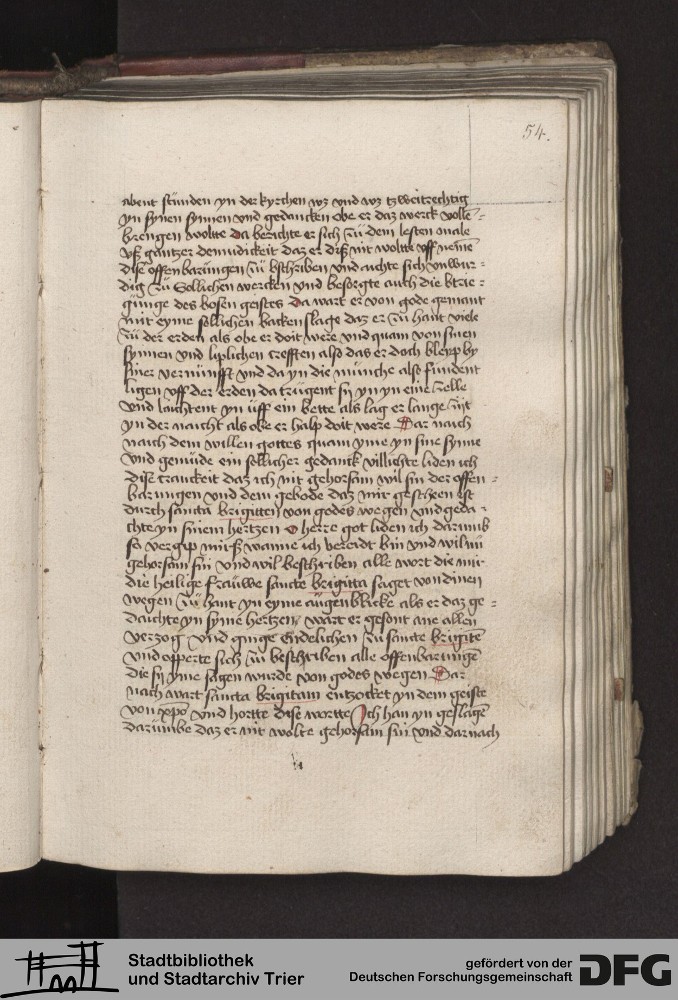 54.
abent stunden yn der kyrchen vz vnd vz tzweitrechtig
yn synen synnen vnd gedancken obe er daz werck volle=
brengen wolte da berichte er sich zu dem lesten male
vß gantzer demudickeit daz er diß nit woltte vff neme
dise offenbarungen zu bschriben vnd achte sich vnwur=
dig zu sollichen wercken vnd besorgte auch die btrie=
gunge des bosen geistes Da wart er von gode gemant
mit eyme sollichen backenslage daz er zu hant viele
zu der erden als obe er doit were vnd quam von sinen
synnen vnd liplichen crefften also das er doch bleypp by
siner vernunfft vnd da yn die munche also fundent
ligen vff der erden da trugent sy yn yn eine zelle
vnd lachtent yn uff ein bette als lag er lange zijt
yn der nacht als obe er halp doit were Dar nach
nach dem willen gottes quam yme yn sine synne
vnd gemude ein sollicher gedanck villichte liden ich
dise cranckeit daz ich nit gehorsam wil sin der offen=
barungen vnd dem gebode daz mir gescheen ist
durch sancta brigitten von godes wegen vnd geda=
chte yn sinem hertzen O herre got liden ich darumb
so vergip mirß wanne ich bereidt bin vnd wil nu
gehorsam sin vnd wil beschriben alle wort die mir
die heilige frauwe sancte brigitta saget von dinen
wegen zu hant yn eyme augenblicke als er daz ge=
dachte yn syme hertzen wart er gesont ane allen
verzog vnd ginge endelichen zu sancte brigite
vnd opperte sich zu beschriben alle offenbarunge
die sy yme sagen wurde von godes wegen Dar
nach wart sancta brigitam entzocket yn dem geiste
von xpo vnd hortte dise wortte Ich han yn geslage
darumbe daz er nit wolte gehorsam sin vnd darnach
Stadtbibliothek
und Stadtarchiv Trier
gefördert von der
Deutschen Forschungsgemeinschaft
DFG